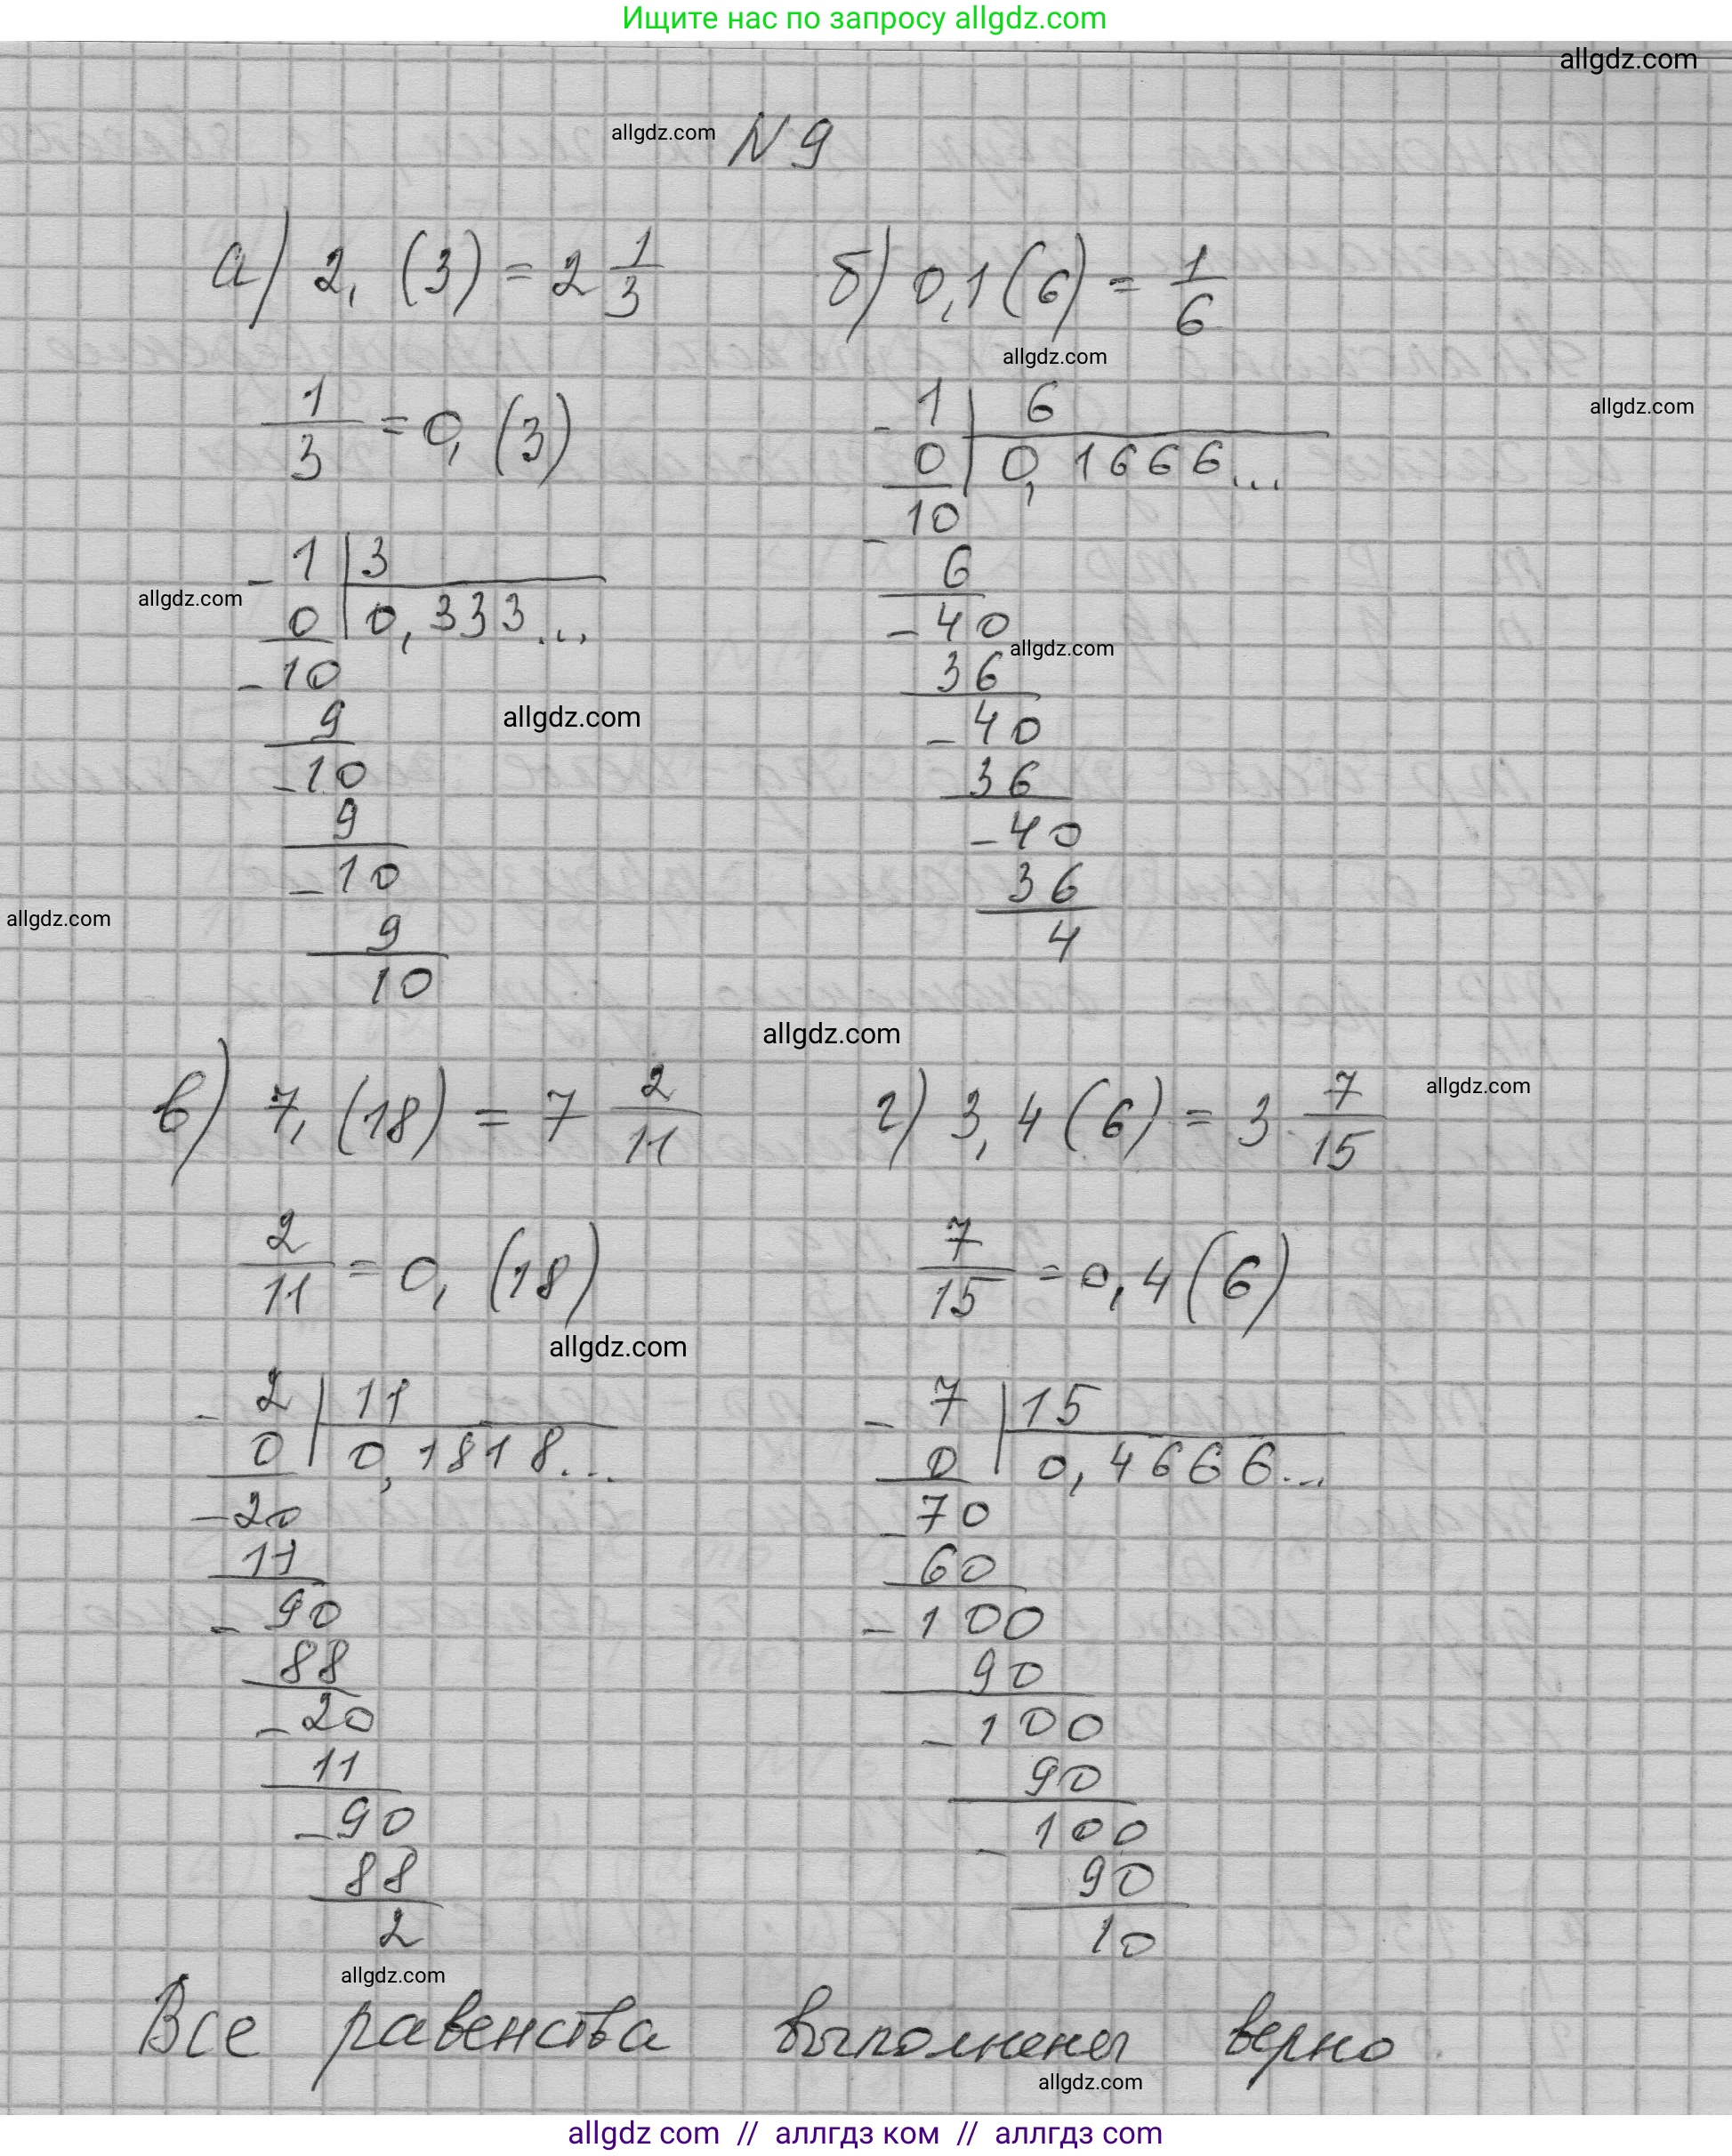 Ищите нас по запросу allgdz.com
allgdz.com
allgdz.com N 9
а) 2, (3) = 2 1/3
б) 0,1(6) = 1/6
allgdz.com
1/3 = 0, (3)
allgdz.com
1 | 3
- 0 | 0,333...
allgdz.com
- 10
9
allgdz.com
- 10
9
- 10
9
10
allgdz.com
- 1 | 6
0 | 0,1666...
- 10
6
- 40
allgdz.com
36
- 40
36
- 40
36
4
allgdz.com
в) 7, (18) = 7 2/11
г) 3,4(6) = 3 7/15
allgdz.com
2/11 = 0, (18)
7/15 = 0,4(6)
allgdz.com
- 2 | 11
0 | 0,1818...
- 20
11
- 90
88
- 20
11
- 90
88
2
- 7 | 15
0 | 0,4666...
- 70
60
- 100
90
- 100
90
- 100
90
10
allgdz.com
Все равенства выполнены верно.
allgdz.com
allgdz com // аллгдз ком // аллгдз com